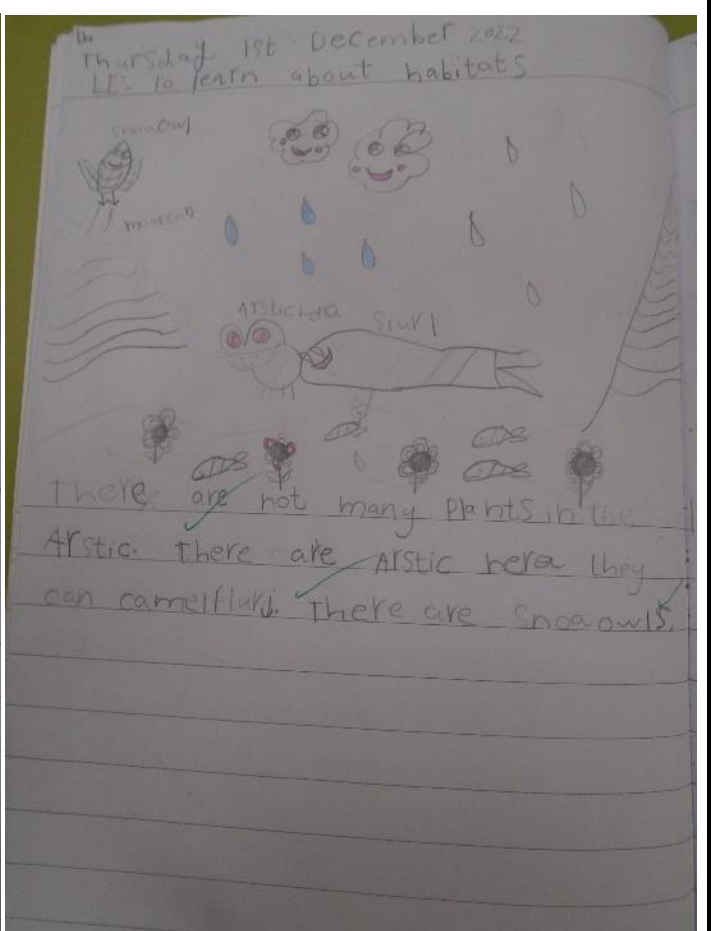 Thursday 1st December 2022
LI: To learn about habitats
snoaOwl
Arstichera
Siurl
There are not many Plants in the
Arstic. There are Arstic hera they
can camelfluri. There are snoaowls.